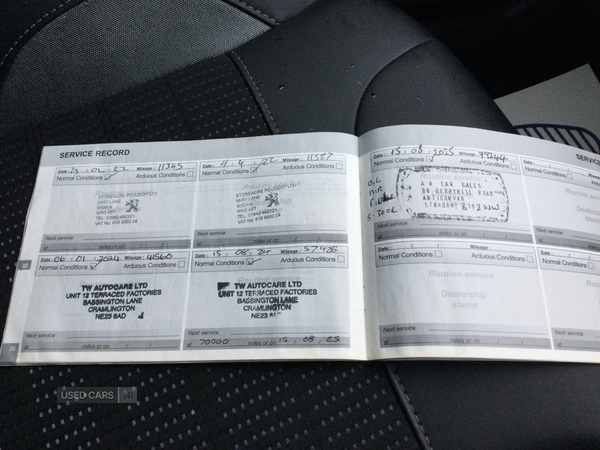 SERVICE RECORD
Date : 23 : 02 : 22 Mileage : 11345
Normal Conditions Arduous Conditions
STONEACRE PEUGEOT LTD
MIRY LANE
WIGAN
VAT No. 616 8960 04
Next service
at miles or on
Date : 4 : 4 : 22 Mileage : 11587
Normal Conditions Arduous Conditions
STONEACRE PEUGEOT LTD
MIRY LANE
WIGAN
VAT No. 616 8960 04
Next service
at miles or on
Date : 06 : 01 : 2024 Mileage : 41560
Normal Conditions Arduous Conditions
TW AUTOCARE LTD
UNIT 12 TERRACED FACTORIES
BASSINGTON LANE
CRAMLINGTON
NE23 8AD
Next service
at miles or on
Date : 15 : 08 : 24 Mileage : 57426
Normal Conditions Arduous Conditions
TW AUTOCARE LTD
UNIT 12 TERRACED FACTORIES
BASSINGTON LANE
CRAMLINGTON
NE23 8AD
Next service
at 70000 miles or on 15 : 08 : 25
Date : 15 : 08 : 2025 Mileage : 79244
Normal Conditions Arduous Conditions
OIL
AIR
CAR SALES
80 BERRYHILL ROAD
ARTIGARVAN
STRABANE
Next service
at miles or on
Date :
Normal Conditions Arduous Conditions
Routine service
Dealership
stamp
Next service
at miles or on
SERVICE
Date :
Normal Conditions
Next service
at
Date :
Normal Conditions
Next service
at
USED CARS NI